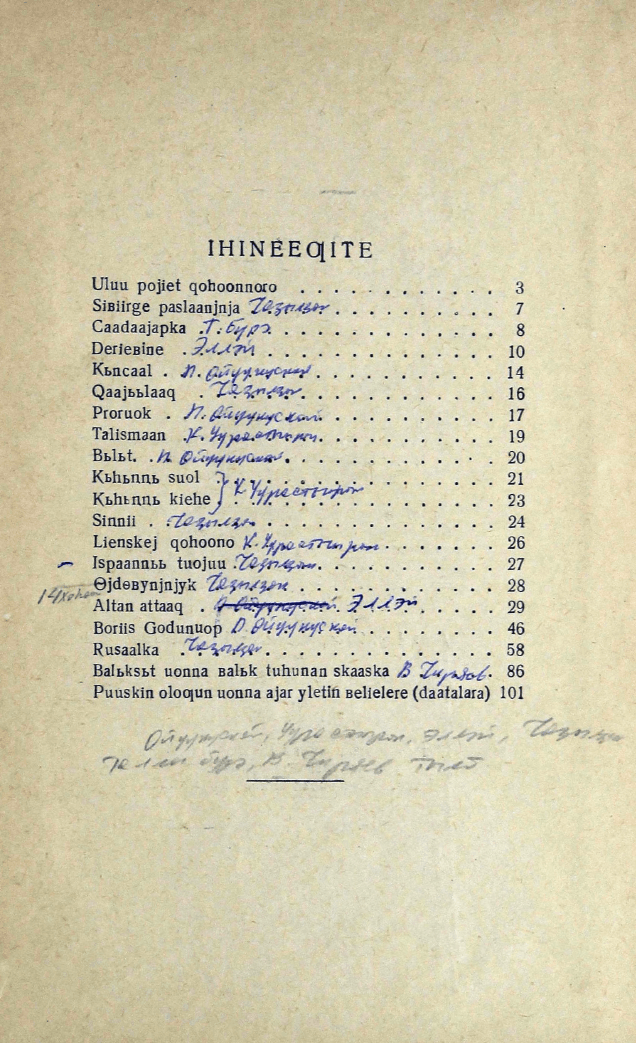 IHINEEƢITE
Uluu pojiet qohoonnoro . . . . . . . . . . . 3
Siʙiirge paslaanjnja Чаҕылҕан . . . . . . . . . 7
Caadaajapka Г. Бүрэ . . . . . . . . . . . 8
Derieʙine . Эллэй . . . . . . . . . . . . 10
Kьncaal . П. Ойуунускай . . . . . . . . . 14
Qaajььlaaq . Чаҕылҕан . . . . . . . . . . 16
Proruok . П. Ойуунускай . . . . . . . . . 17
Talismaan . К. Уурастыырап . . . . . . . . . 19
Bьlьt. . П. Ойуунускай . . . . . . . . . . 20
Kьhьnnь suol . . . . . . . . . 21
Kьhьnnь kiehe К. Уурастыырап . . . . . . . . 23
Sinnii . Чаҕылҕан . . . . . . . . . . . 24
Lienskej qohoono К. Уурастыырап . . . . . . 26
Ispaannьь tuojuu Чаҕылҕан . . . . . . . . 27
Өjdөʙynjnjyk Чаҕылҕан . . . . . . . . . . 28
Altan attaaq . Эллэй . . . . 29
Boriis Godunuop П. Ойуунускай . . . . . . . 46
Rusaalka . Чаҕылҕан . . . . . . . . . . . 58
Balьksьt uonna ʙalьk tuhunan skaaska В Чиряев . 86
Puuskin oloƣun uonna ajar yletin ʙelielere (daatalara) 101
Ойуунускай, Уурастыырап, Эллэй, Чаҕылҕан
Гэлли Бүрэ, В. Чиряев